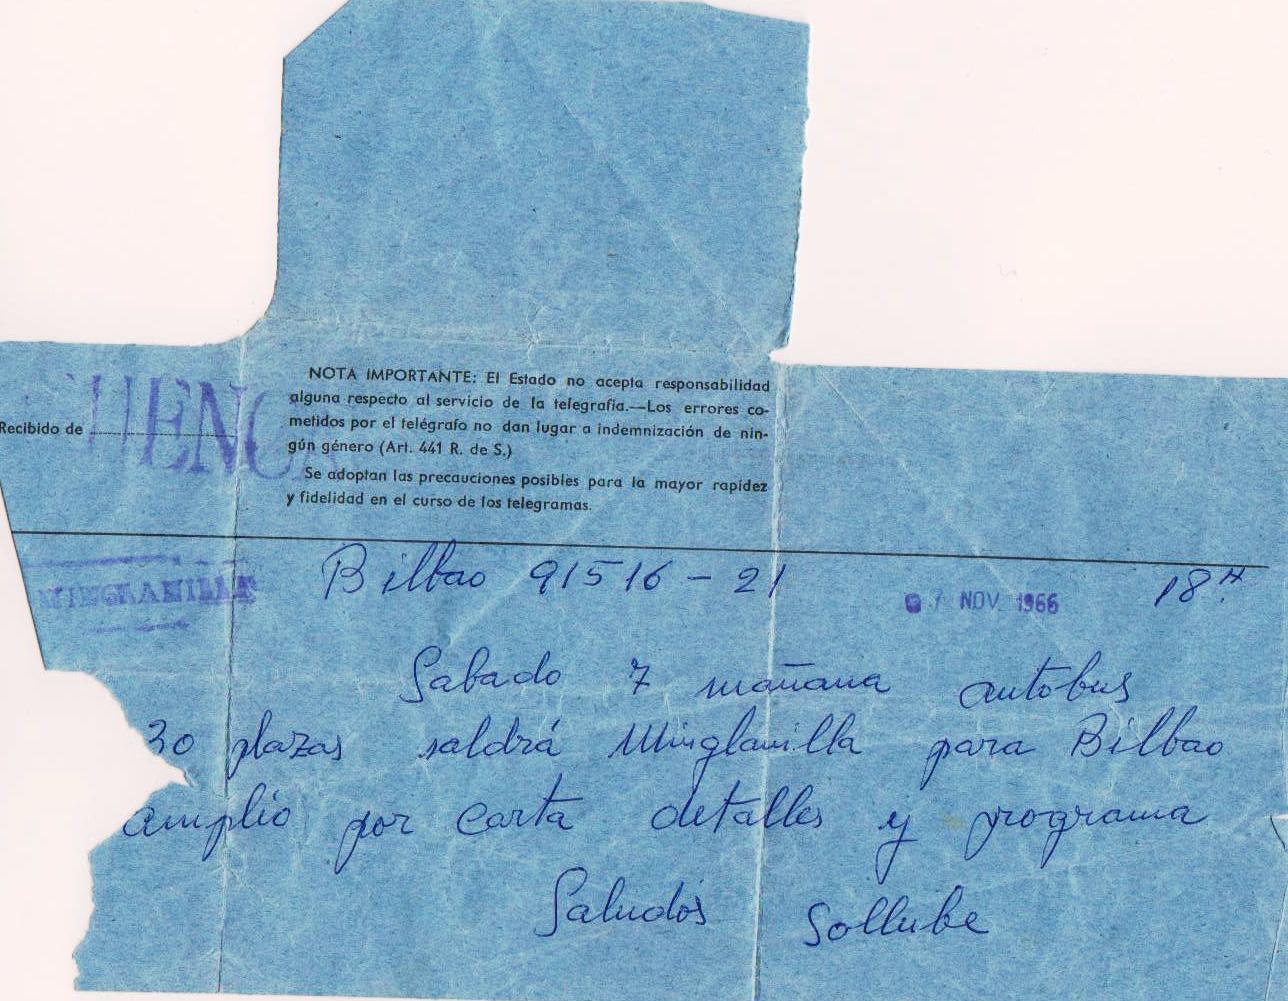 NOTA IMPORTANTE: El Estado no acepta responsabilidad
alguna respecto al servicio de la telegrafía.—Los errores co-
metidos por el telégrafo no dan lugar a indemnización de nin-
gún género (Art. 441 R. de S.)
Se adoptan las precauciones posibles para la mayor rapidez
y fidelidad en el curso de los telegramas.
Recibido de
UENC
MINGLANILLA
Bilbao 91516 - 21
7 NOV. 1966
18H.
Sabado 7 mañana autobus
30 plazas saldrá Minglanilla para Bilbao
amplio por carta detalles y programa
Saludos Sollube